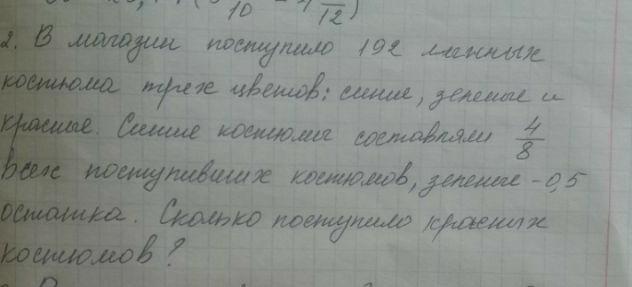 10 12)
2. В магазин поступило 192 лыжных
костюма трех цветов: синие, зеленые и
красные. Синие костюмы составляли 4/8
всех поступивших костюмов, зеленые - 0,5
остатка. Сколько поступило красных
костюмов?